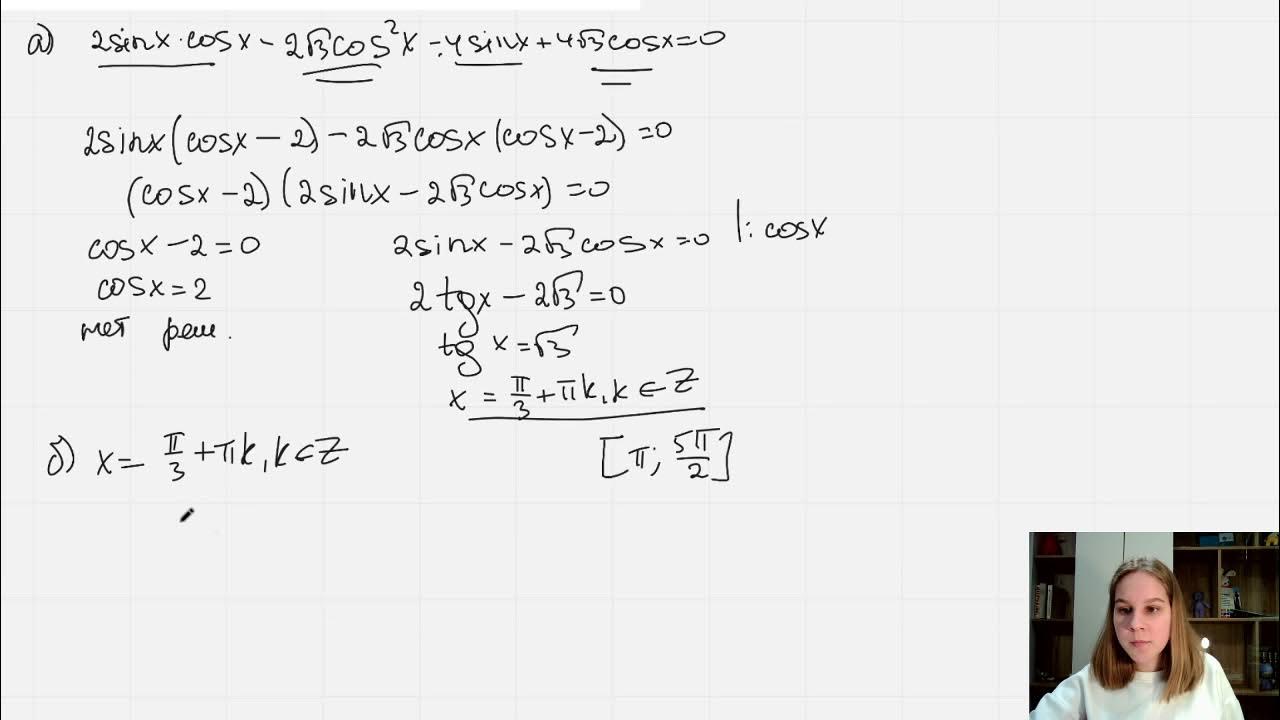 а) 2sinx·cosx - 2√3cos²x - 4sinx + 4√3cosx = 0
2sinx(cosx - 2) - 2√3cosx(cosx - 2) = 0
(cosx - 2)(2sinx - 2√3cosx) = 0
cosx - 2 = 0 2sinx - 2√3cosx = 0 |: cosx
cosx = 2 2tgx - 2√3 = 0
нет реш. tg x = √3
x = π/3 + πk, k ∈ Z
б) x = π/3 + πk, k ∈ Z [π; 5π/2]